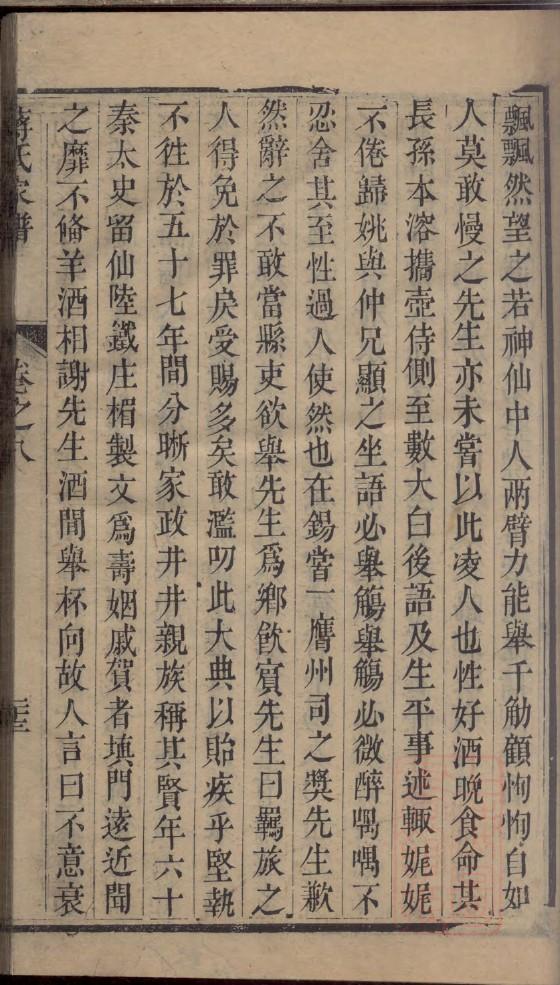 飄飄然望之若神仙中人兩臂力能舉千觔顧恂恂自如
人莫敢慢之先生亦未嘗以此凌人也性好酒晚食命其
長孫本溶攜壺侍側至數大白後語及生平事述輒娓娓
不倦歸姚與仲兄顯之坐語必舉觴舉觴必微醉喁喁不
忍舍其至性過人使然也在錫嘗一膺州司之獎先生歉
然辭之不敢當縣吏欲舉先生為鄉飲賓先生曰羈旅之
人得免於罪戾受賜多矣敢濫叨此大典以貽疾乎堅執
不徃於五十七年間分晰家政井井親族稱其賢年六十
秦太史留仙陸鐵庄楣製文為壽姻戚賀者填門遠近聞
之靡不備羊酒相謝先生酒閒舉杯向故人言曰不意衰
蔣氏家譜
卷之八
二十三